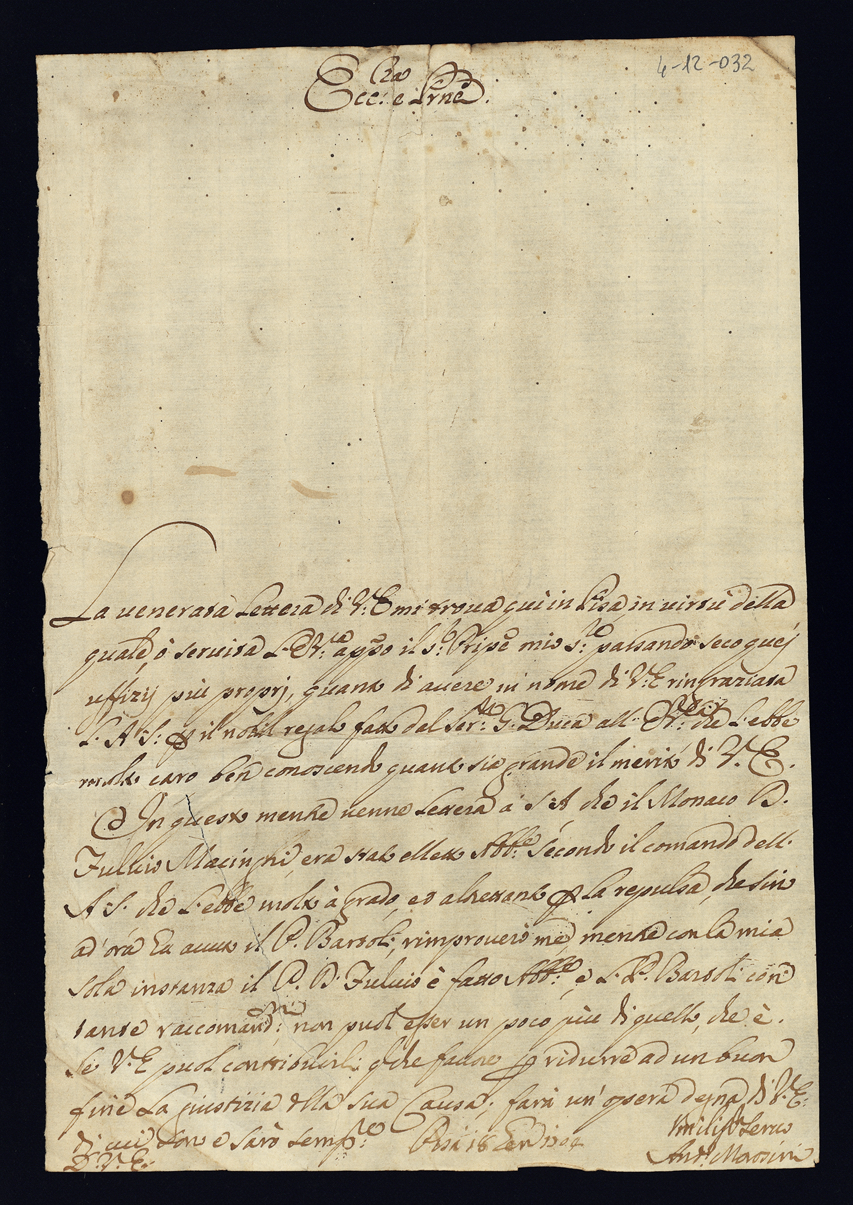 4-12-032
Ecc: e
La venerata Lettera di V: E mi trova quì in Pisa in virtù della
quale ò servita L: A: app:o il S:r Pripe mio S:re passando seco quej
uffizij più proprj, quant di avere in nome di V: E ringraziata
L: A: S: il nobil regalo fatt dal Ser: G: Duca all: che L'ebbe
molt caro ben conoscendo quant sia grande il merit di V: E.
In quest mentre venne Lettera à S: A che il Monaco D.
Fulvio era stat elett Abb: secondo il comando dell:
A: S: che L'ebbe molt à grado, ed altrettant La repulsa, che sin
ad ora à avut il P. Bartoli, rimproverò me, mentre con la mia
sola instanza il P. D. Fulvio è fatto Abb: e L: P. Bartoli con
tante raccomand:ni non puol esser un poco più di quello, che è.
Se V: E puol contribuirli q:che favore ridurre ad un buon
fine La giustizia della sua Causa; farà un'opera degna di V: E:
di cui son e sarò semp:re Pisa 16
D: V: E: Umiliss: Servo
And: